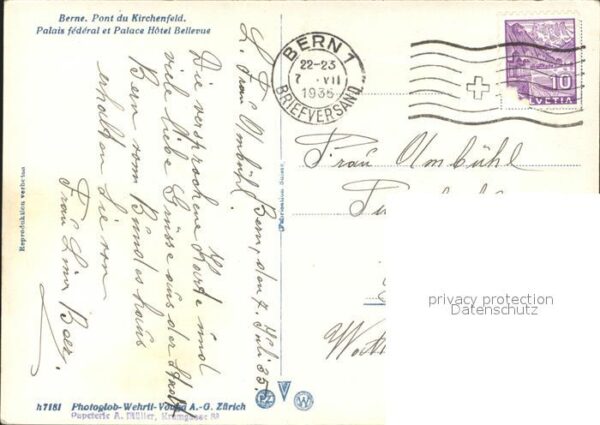 Berne. Pont du Kirchenfeld.
Palais fédéral et Palace Hôtel Bellevue
Bern, den 7. Juli 35.
L. Frau Umbühl.
Die versprochene Karte und
viele liebe Grüsse aus der Stadt
Bern vom Bundeshaus
erhalten Sie von
Frau Lina Baer.
Reproduktion verboten
Fabrication Suisse
h7181 Photoglob-Wehrli-Vouga A.-G. Zürich
Papeterie A. Müller, Kramgasse
BERN 1
22-23
7. VII
1935
BRIEFVERSAND
10
HELVETIA
Frau Umbühl
privacy protection
Datenschutz